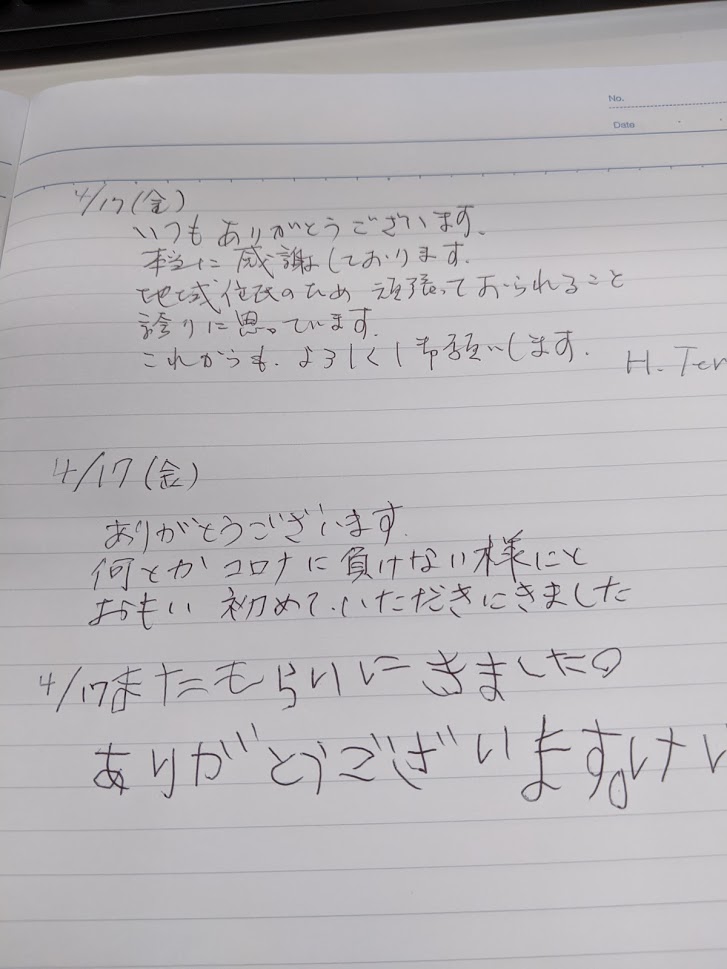 No.
Date
4/17(金)
いつもありがとうございます。
本当に感謝しております。
地域住民のため 頑張っておられること
誇りに思っています。
これからも、よろしくお願いします。
H. Ter
4/17(金)
ありがとうございます。
何とかコロナに負けない様にと
おもい 初めていただきにきました
4/17またもらいにきました。
ありがとうございます。けい